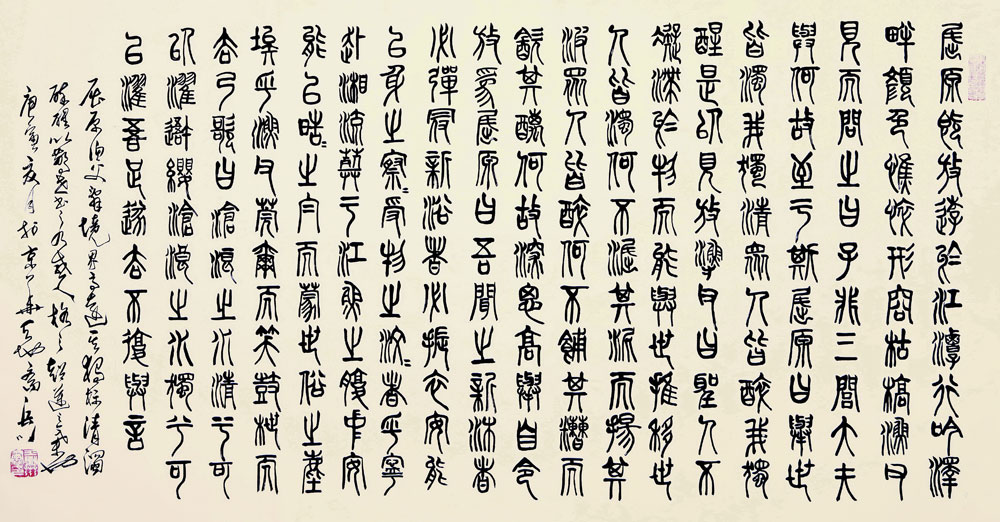 屈原既放遊於江潭行吟澤
畔顏色憔悴形容枯槁漁父
見而問之曰子非三閭大夫
與何故至于斯屈原曰舉世
皆濁我獨清眾人皆醉我獨
醒是以見放漁父曰聖人不
凝滯於物而能與世推移世
人皆濁何不淈其泥而揚其
波眾人皆醉何不餔其糟而
歠其醨何故深思高舉自令
放為屈原曰吾聞之新沐者
必彈冠新浴者必振衣安能
以身之察〻受物之汶〻者乎寧
赴湘流葬于江魚之腹中安
能以皓〻之白而蒙世俗之塵
埃乎漁父莞爾而笑鼓枻而
去乃歌曰滄浪之水清兮可
以濯吾纓滄浪之水濁兮可
以濯吾足遂去不復與言
屈原漁父辭境界高遠其獨標清濁
醉醒以警世
庚寅夏月於京華